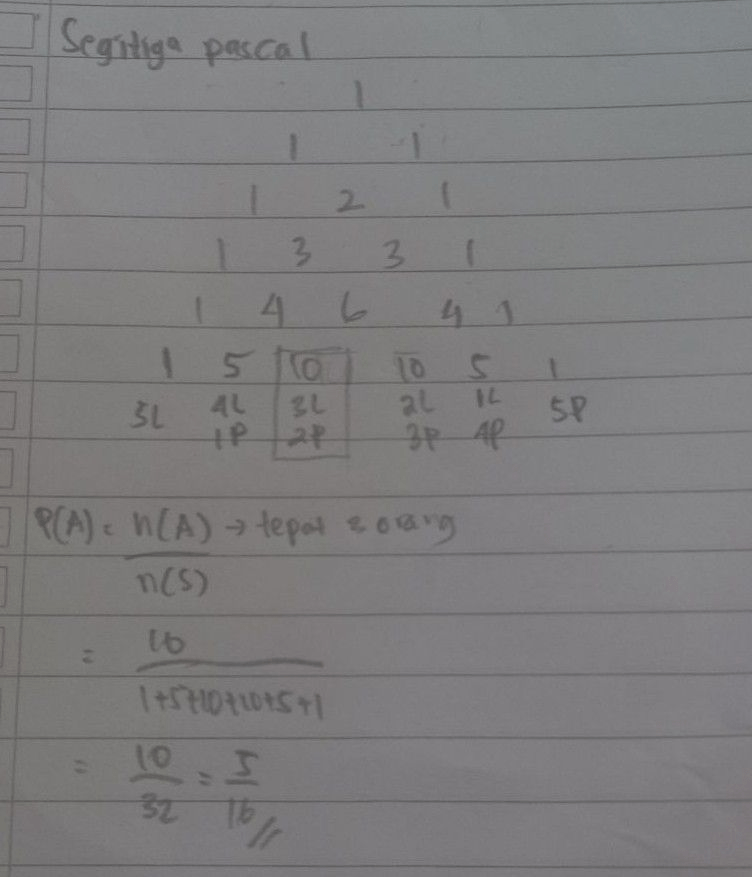 Segitiga pascal
1
1 1
1 2 1
1 3 3 1
1 4 6 4 1
1 5 10 10 5 1
3L 4L 3L 2L 1L 5P
1P 2P 3P 4P
P(A) = n(A) → tepat 2 orang
n(S)
= 10
1+5+10+10+5+1
= 10 = 5
32 16 //